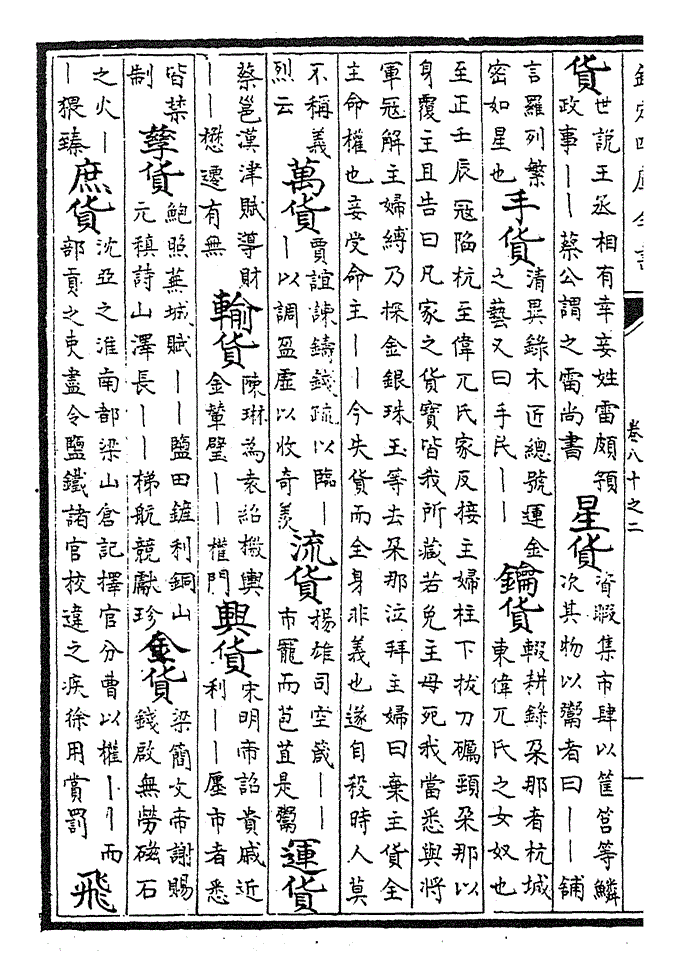 欽定四庫全書
卷八十之二
一
貨
世說王丞相有幸妾姓雷頗預
政事丨丨蔡公謂之雷尚書
星貨
資暇集市肆以筐筥等鱗
次其物以鬻者曰丨丨鋪
言羅列繁
密如星也
手貨
清異錄木匠總號運金
之藝又曰手民丨丨
鑰貨
輟耕錄朶那者杭城
東偉兀氏之女奴也
至正壬辰冦陷杭主偉兀氏家反接主婦柱下拔刀礪頸朶那以
身覆主且告曰凡家之貨寶皆我所藏若免主母死我當悉與將
軍冦解主婦縛乃探金銀珠玉等去朶那泣拜主婦曰棄主貨全
主命權也妾受命主丨丨今失貨而全身非義也遂自殺時人莫
不稱義
烈云
萬貨
賈誼諫鑄錢疏以臨丨
丨以調盈虛以收奇羡
流貨
揚雄司空箴丨丨
市寵而苞苴是鬻
運貨
蔡邕漢津賦導財
丨丨懋遷有無
輸貨
陳琳為袁紹檄輿
金輦璧丨丨權門
興貨
宋明帝詔貴戚近
利丨丨㕓市者悉
皆禁
制
孳貨
鮑照蕪城賦丨丨鹽田鏟利銅山
元稹詩山澤長丨丨梯航競獻珍
金貨
梁簡文帝謝賜
錢啟無勞磁石
之火丨
丨猥臻
庶貨
沈亞之淮南都梁山倉記擇官分曹以權丨丨而
部貢之吏盡令鹽鐵諸官校違之疾徐用賞罰
飛